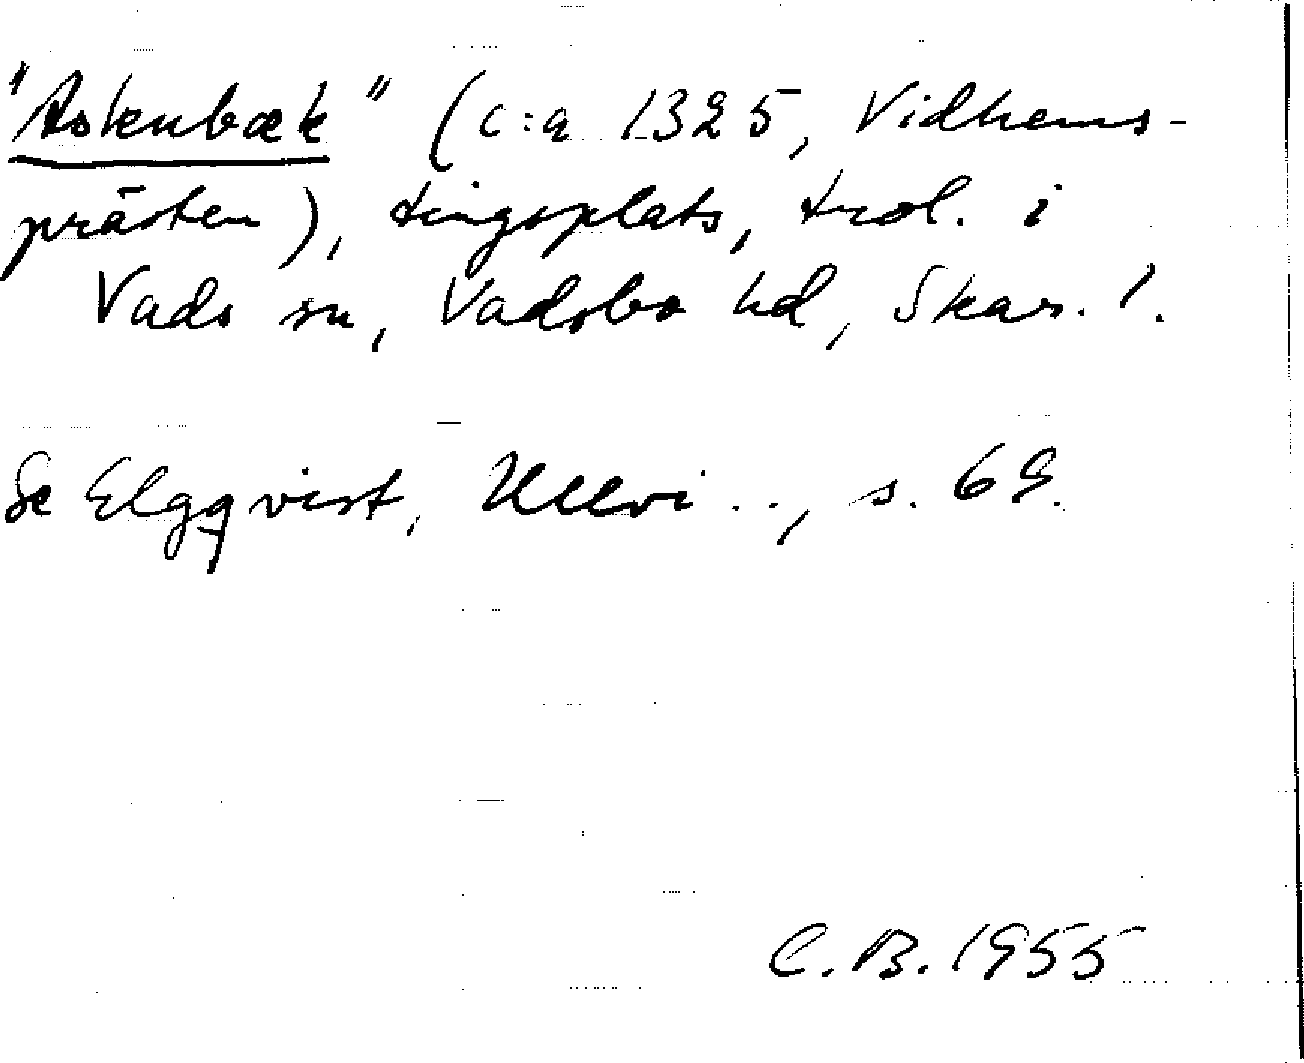 "Askenbæk" (c:a 1325, Vidhems-
prästen), tingsplats, trol. i
Vads sn, Vadsbo hd, Skar. l.
Se Elgqvist, Ullvi . . , s. 69.
C. B. 1955